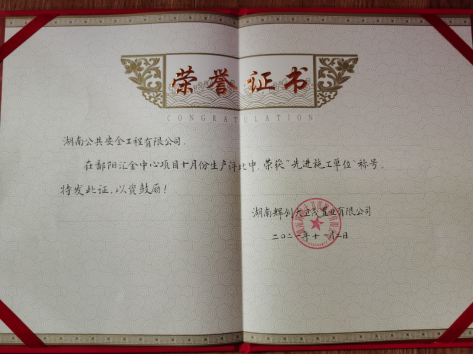 荣誉证书
CONGRATULATION
湖南公共安全工程有限公司:
在鄱阳汇金中心项目十月份生产评比中,荣获“先进施工单位”称号。
特发此证,以资鼓励!
湖南辉创大卫茂置业有限公司
二〇二一年十一月二日